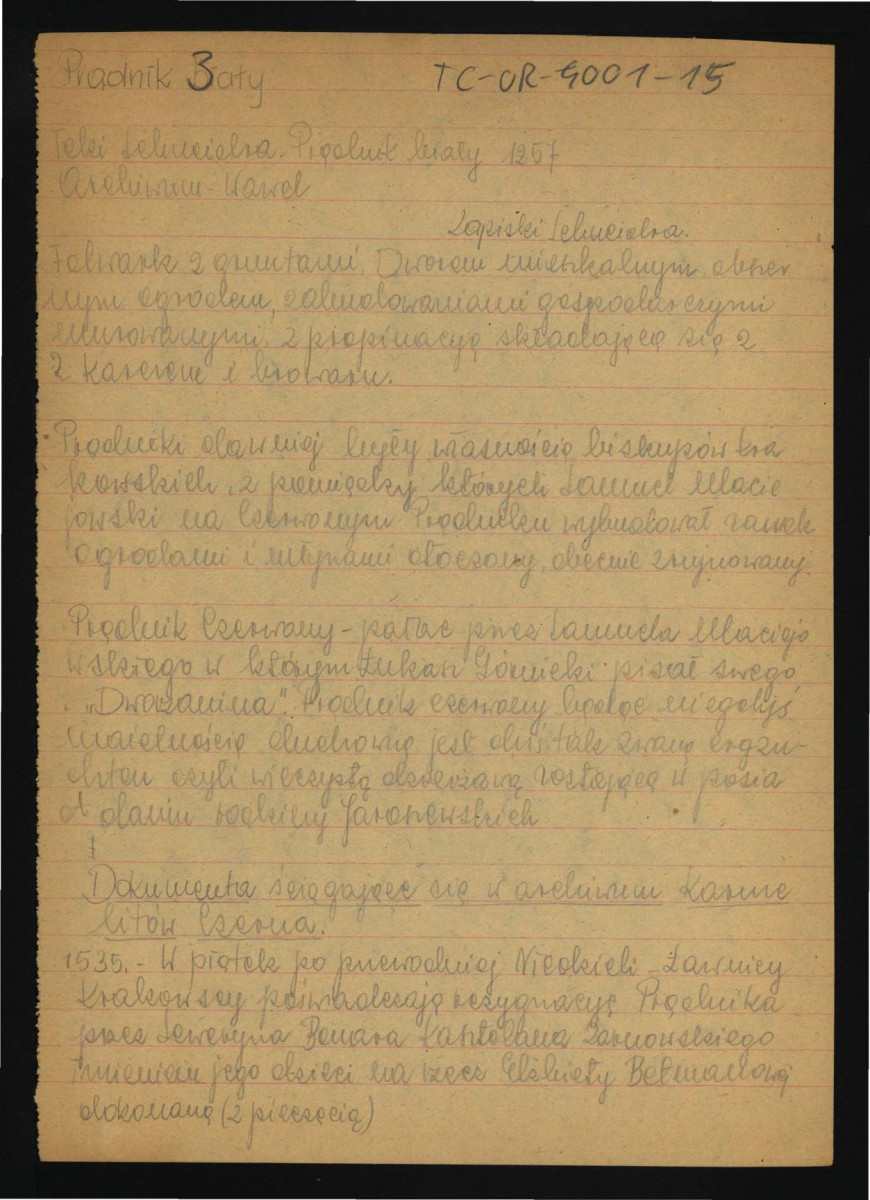 Prądnik Biały TC-OR-4001-15
Teki Schneidra. Prądnik biały 1257
Archiwum - Wawel
Zapiski Schneidra.
Folwark z gruntami, Dworem mieszkalnym, obszer
nym ogrodem, zabudowaniami gospodarczymi
murowanymi, z propinacyą składającą się z
2 Karczem i browaru.
Prądniki dawniej były własnością biskupów kra
kowskich, z pomiędzy których Samuel Macie
jowski na Czerwonym Prądniku wybudował zamek
ogrodami i młynami otoczony, obecnie zrujnowany
Prądnik Czerwony - pałac przez Samuela Maciejo
wskiego w którym Łukasz Górnicki pisał swego
„Dworzanina". Prądnik czerwony będąc niegdyś
majętnością duchowną jest dziś tak zwaną
czyli wieczystą dzierżawą zostającą w posia
daniu rodziny Jaroszewskich
I
Dokumenta ściągające się w archiwum Karme
litów Czerna.
1535. - W piątek po przewodniej Niedzieli - Ławnicy
Krakowscy poświadczają rezygnacyę Prądnika
przez Seweryna Bonara Kasztelana Żarnowskiego
imieniem jego dzieci na rzecz Elżbiety Betmanowej
dokonaną (z pieczęcią)